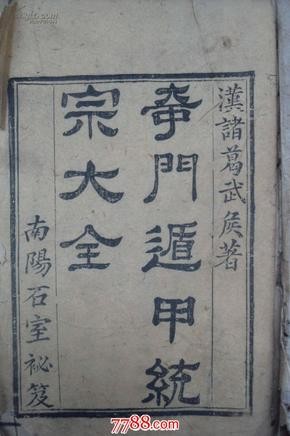 漢諸葛武侯著
奇門遁甲統
宗大全
南陽石室祕笈
7788.com